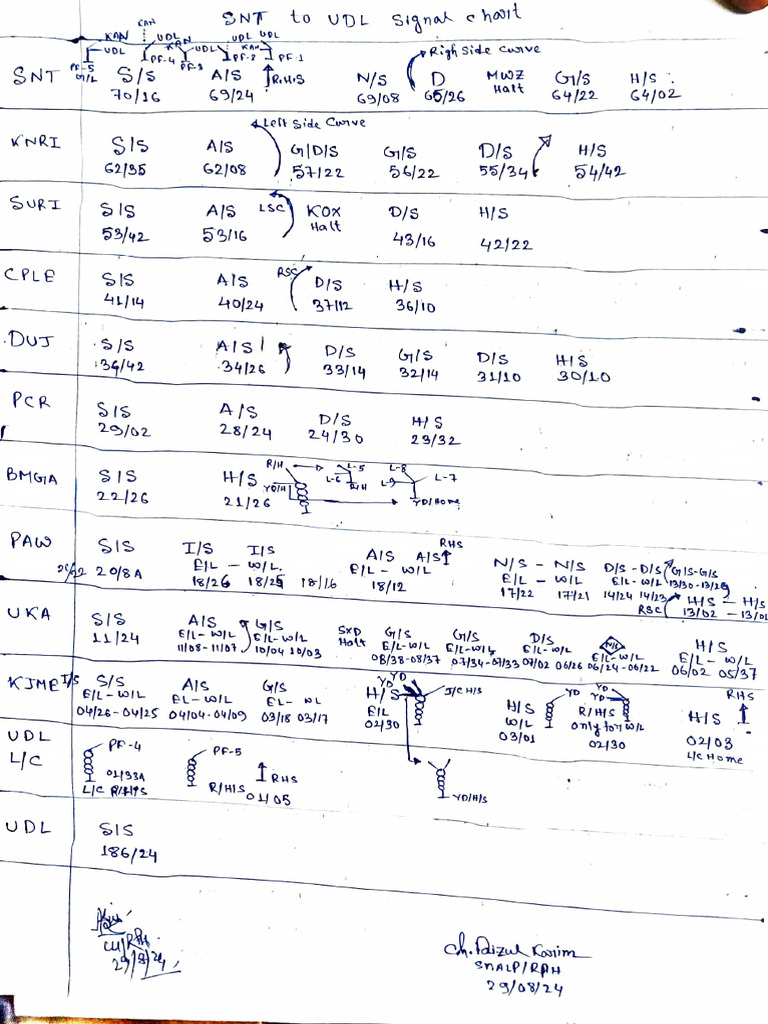 SNT to UDL Signal chart
KAN
KAN UDL UDL UDL
UDL KAN UDL KAN
PF-5 PF-4 PF-3 PF-2 PF-1
G/L
Righ Side Curve
SNT S/S A/S R.H.S N/S D MWZ Halt G/S H/S
70/16 69/24 69/08 65/26 64/22 64/02
Left Side Curve
KNRI S/S A/S G/D/S G/S D/S H/S
62/35 62/08 57/22 56/22 55/34 54/42
SURI S/S A/S LSC KOX Halt D/S H/S
53/42 53/16 43/16 42/22
CPLE S/S A/S RSC D/S H/S
41/14 40/24 37/12 36/10
DUJ S/S A/S D/S G/S D/S H/S
34/26 33/14 32/14 31/10 30/10
PCR S/S A/S D/S H/S
29/02 28/24 24/30 23/32
R/H L-5 L-8
BMGA S/S H/S L-6 L-9 L-7
22/26 21/26 YD/H R/H YD/Home
PAW S/S I/S I/S A/S A/S RHS N/S - N/S D/S - D/S G/S-G/S
E/L - W/L E/L - W/L E/L - W/L E/L - W/L 13/30 - 13/29
20/8A 18/26 18/25 18/16 18/12 17/22 17/21 14/24 14/23
RSC H/S - H/S
13/02 - 13/01
UKA S/S A/S G/S SXD Halt G/S G/S D/S N/S H/S
E/L- W/L E/L- W/L E/L- W/L E/L- W/L E/L- W/L E/L- W/L E/L- W/L
11/24 11/08 - 11/07 10/04 10/03 08/38-08/37 07/34-07/33 07/02 06/26 06/24 - 06/22 06/02 05/37
KJME I/S S/S A/S G/S H/S YD YD I/C H/S H/S YD YD YD R/H/S H/S RHS
E/L- W/L E/L- W/L E/L- WL E/L W/L only for W/L
04/26 - 04/25 04/04 - 04/09 03/18 03/17 02/30 03/01 02/30 02/03
L/C Home
UDL L/C PF-4 PF-5
01/33A RHS
L/C R/H/S R/H/S 01/05 YD/H/S
UDL S/S
186/24
Ch. Faizul Karim
SNALP/RPH
29/08/24